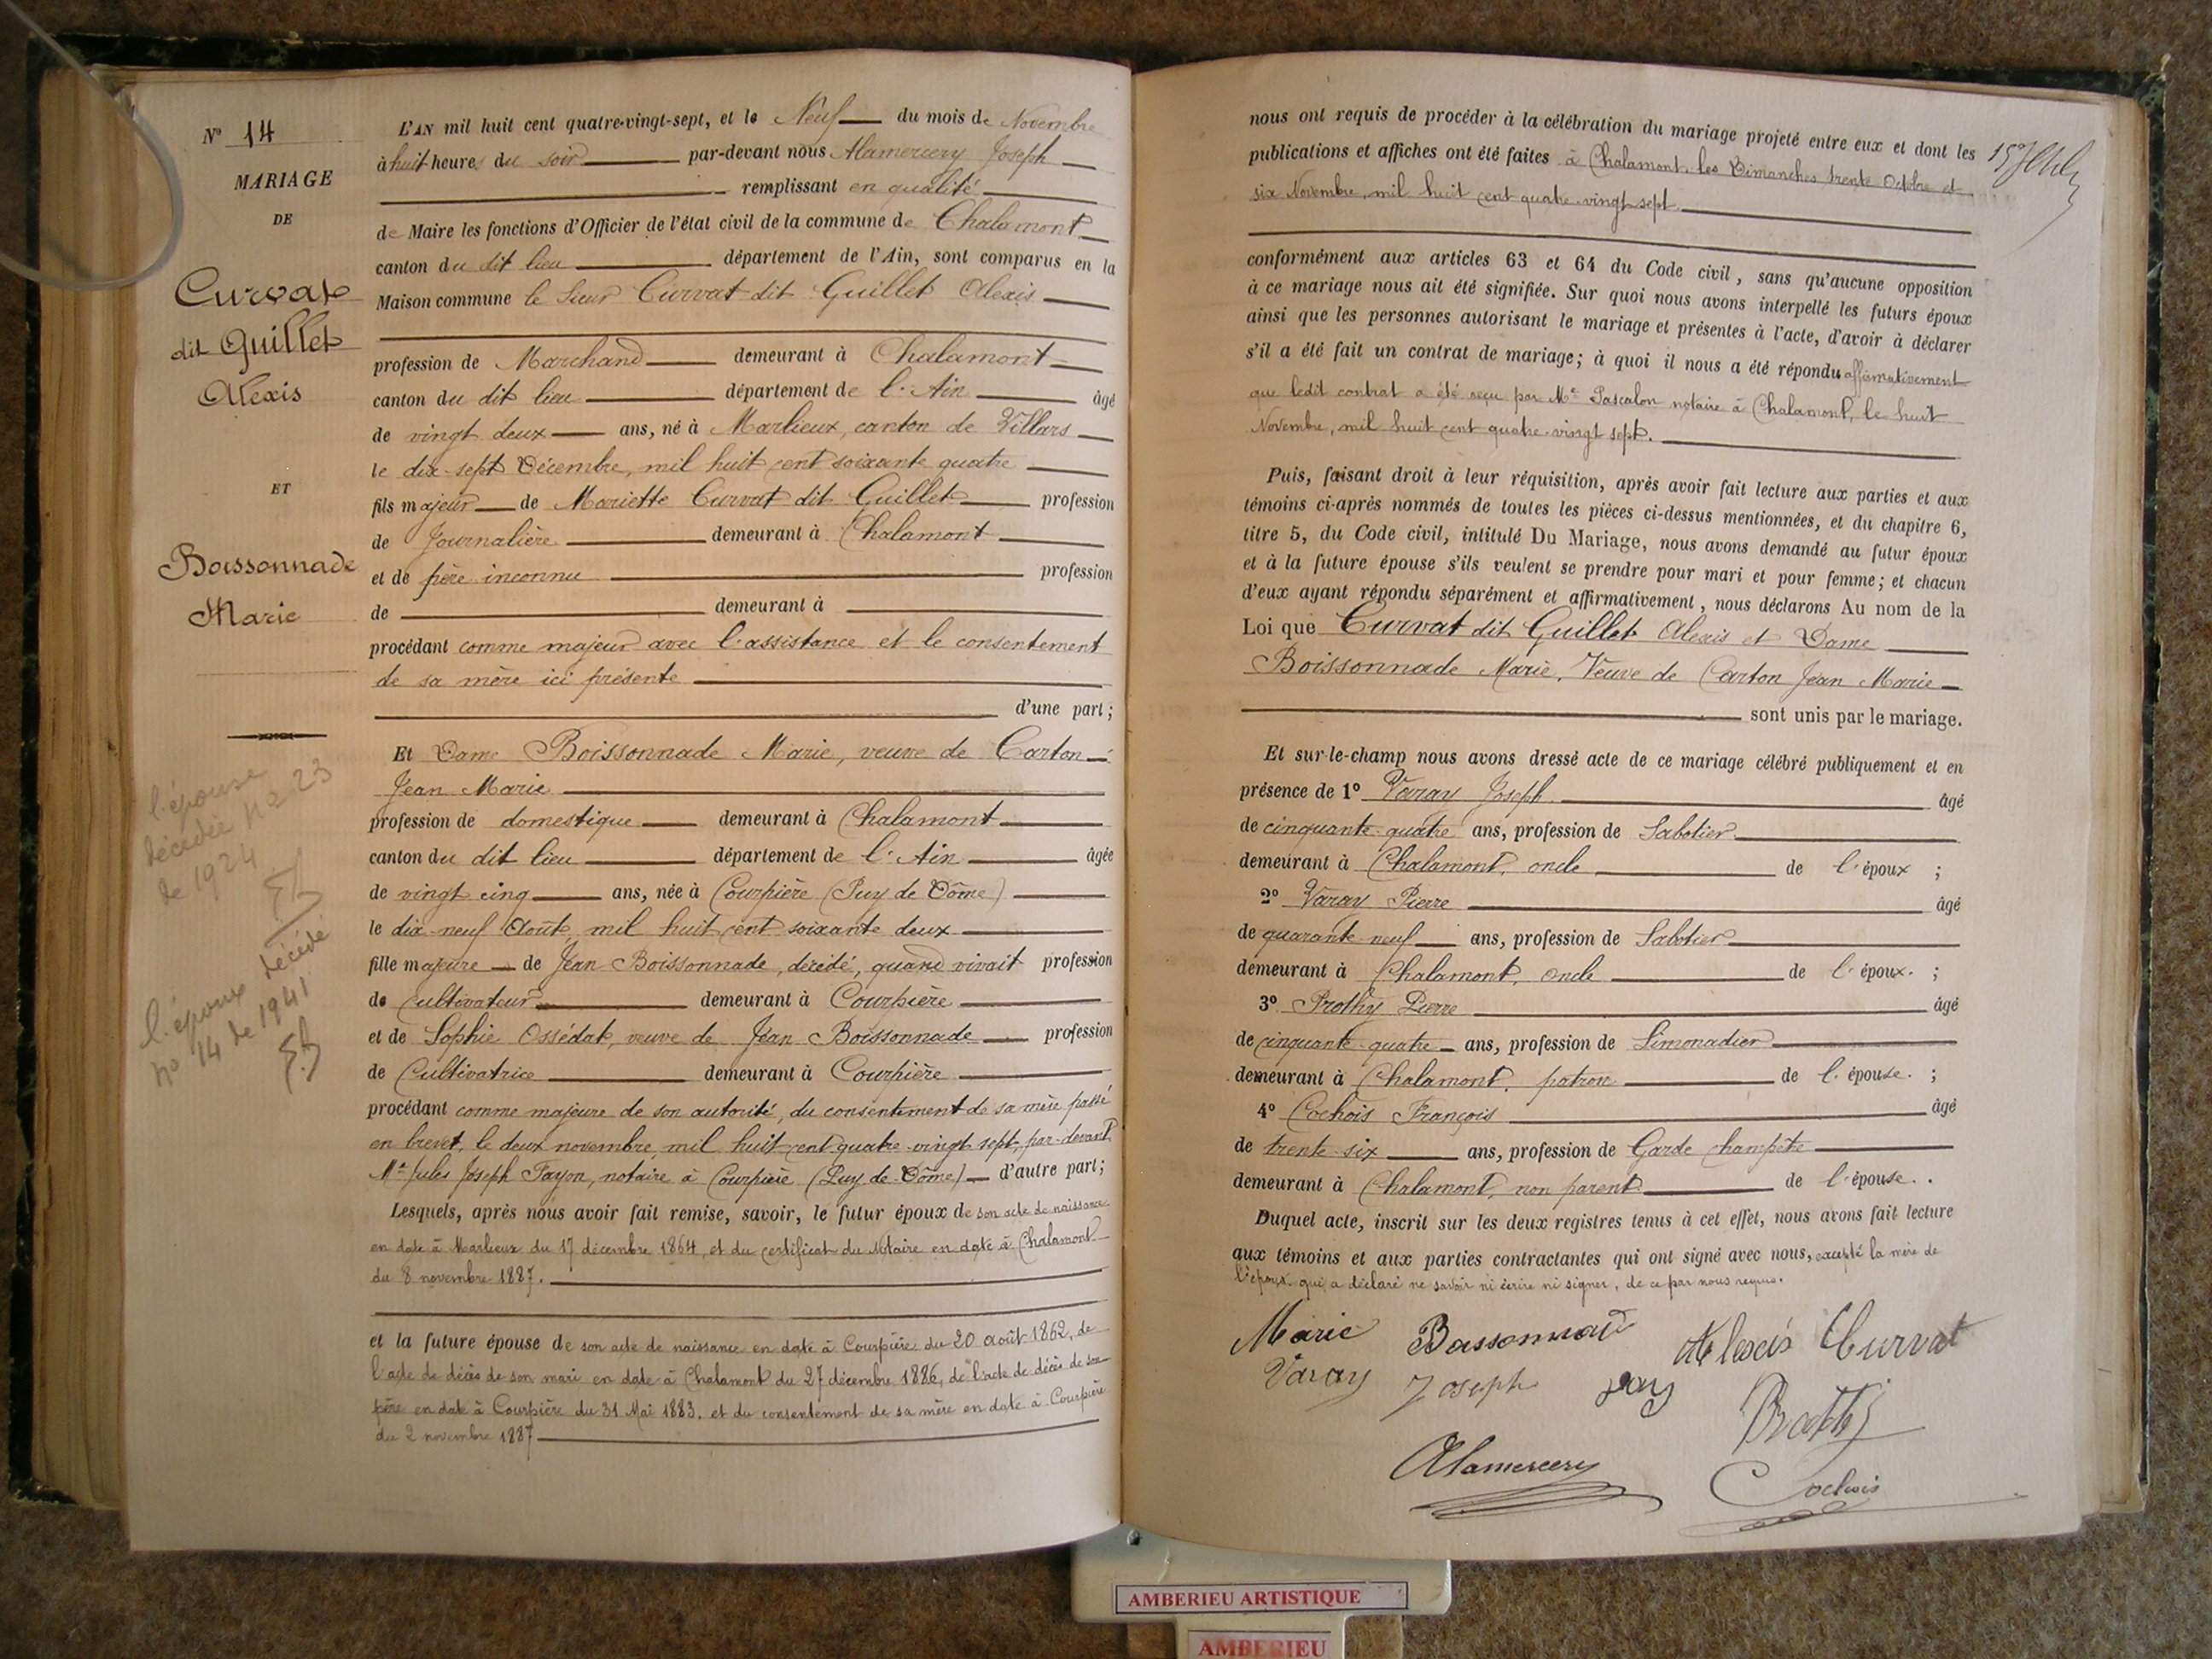 N° 14
MARIAGE
DE
Curvat
dit Guillet
Alexis
ET
Boissonnade
Marie
l'épouse
décédée n° 23
de 1924
l'époux décédé
n° 14 de 1941
L'AN mil huit cent quatre-vingt-sept, et le Neuf du mois de Novembre
à huit heures du soir par-devant nous Alamercery Joseph
remplissant en qualité
de Maire les fonctions d'Officier de l'état civil de la commune de Chalamont
canton du dit lieu département de l'Ain, sont comparus en la
Maison commune le Sieur Curvat dit Guillet Alexis
profession de Marchand demeurant à Chalamont
canton du dit lieu département de l'Ain âgé
de vingt deux ans, né à Marlieux, canton de Villars
le dix-sept Décembre, mil huit cent soixante quatre
fils majeur de Mariette Curvat dit Guillet profession
de Journalière demeurant à Chalamont
et de père inconnu profession
de demeurant à
procédant comme majeur avec l'assistance et le consentement
de sa mère ici présente
d'une part;
Et Dame Boissonnade Marie, veuve de Carton
Jean Marie
profession de domestique demeurant à Chalamont
canton du dit lieu département de l'Ain âgée
de vingt cinq ans, née à Courpière (Puy de Dôme)
le dix-neuf Août, mil huit cent soixante deux
fille majeure de Jean Boissonnade, décédé, quand vivait profession
de Cultivateur demeurant à Courpière
et de Sophie Ossédat, veuve de Jean Boissonnade profession
de Cultivatrice demeurant à Courpière
procédant comme majeure de son autorité, du consentement de sa mère passé
en brevet, le deux novembre, mil huit cent quatre-vingt sept, par-devant
Me Jules Joseph Fayon, notaire à Courpière (Puy de Dôme) d'autre part;
Lesquels, après nous avoir fait remise, savoir, le futur époux de son acte de naissance
en date à Marlieux du 17 décembre 1864, et du certificat du Notaire en date à Chalamont
du 8 novembre 1887.
et la future épouse de son acte de naissance en date à Courpière du 20 août 1862, de
l'acte de décès de son mari en date à Chalamont du 27 décembre 1886, de l'acte de décès de son
père en date à Courpière du 31 Mai 1883. et du consentement de sa mère en date à Courpière
du 2 novembre 1887
nous ont requis de procéder à la célébration du mariage projeté entre eux et dont les
publications et affiches ont été faites à Chalamont, les Dimanches trente Octobre et
six Novembre, mil huit cent quatre-vingt sept.
conformément aux articles 63 et 64 du Code civil, sans qu'aucune opposition
à ce mariage nous ait été signifiée. Sur quoi nous avons interpellé les futurs époux
ainsi que les personnes autorisant le mariage et présentes à l'acte, d'avoir à déclarer
s'il a été fait un contrat de mariage; à quoi il nous a été répondu affirmativement
que ledit contrat a été reçu par Me Pascalon notaire à Chalamont, le huit
Novembre, mil huit cent quatre-vingt sept.
Puis, faisant droit à leur réquisition, après avoir fait lecture aux parties et aux
témoins ci-après nommés de toutes les pièces ci-dessus mentionnées, et du chapitre 6,
titre 5, du Code civil, intitulé Du Mariage, nous avons demandé au futur époux
et à la future épouse s'ils veulent se prendre pour mari et pour femme; et chacun
d'eux ayant répondu séparément et affirmativement, nous déclarons Au nom de la
Loi que Curvat dit Guillet Alexis et Dame
Boissonnade Marie, Veuve de Carton Jean Marie
sont unis par le mariage.
Et sur-le-champ nous avons dressé acte de ce mariage célébré publiquement et en
présence de 1° Varay Joseph âgé
de cinquante-quatre ans, profession de Sabotier
demeurant à Chalamont, oncle de l'époux ;
2° Varay Pierre âgé
de quarante neuf ans, profession de Sabotier
demeurant à Chalamont, oncle de l'époux. ;
3° Prothy Pierre âgé
de cinquante-quatre ans, profession de Limonadier
demeurant à Chalamont, patron de l'épouse. ;
4° Cochois François âgé
de trente-six ans, profession de Garde champête
demeurant à Chalamont, non parent de l'épouse. .
Duquel acte, inscrit sur les deux registres tenus à cet effet, nous avons fait lecture
aux témoins et aux parties contractantes qui ont signé avec nous, excepté la mère de
l'époux qui a déclaré ne savoir ni écrire ni signer, de ce par nous requise.
Marie Boissonnad Alexis Curvat
Varay Joseph
Prothy
Alamercery
Cochois
AMBERIEU ARTISTIQUE
AMBERIEU